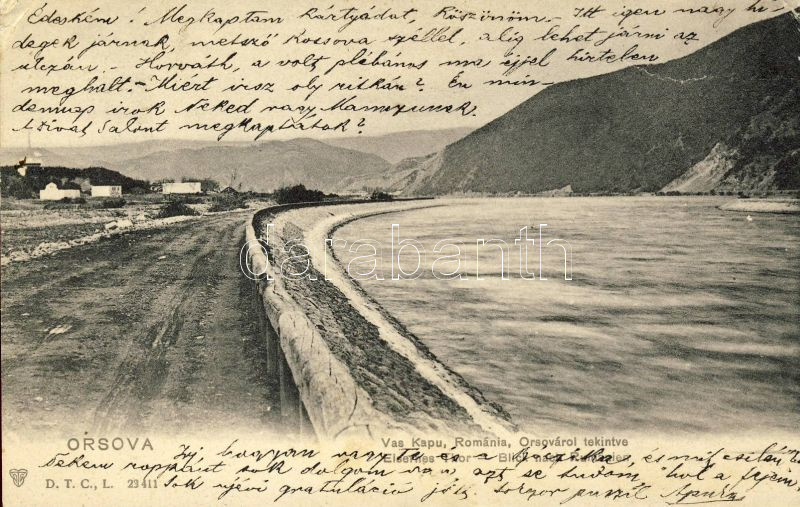 Édeském! Megkaptam kártyádat, köszönöm. Itt igen nagy hi-
degek járnak, metsző Kossova széllel, alig lehet járni az
utczán. - Horváth, a volt plébános ma éjjel hirtelen
meghalt. - Miért irsz oly ritkán? Én min-
dennap irok Neked vagy Mamczunak.
A Divat Salont megkaptátok?
darabanth
ORSOVA
Vas Kapu, Románia, Orsováról tekintve
Eisernes Thor — Blick nach Rumänien
D. T. C., L. 23411
Irj, hogyan vagy te és a és mit csinál?
Nekem roppant sok dolgom van, azt se tudom hol a fejem,
Sok ujévi gratuláció jött. puszil Apuka